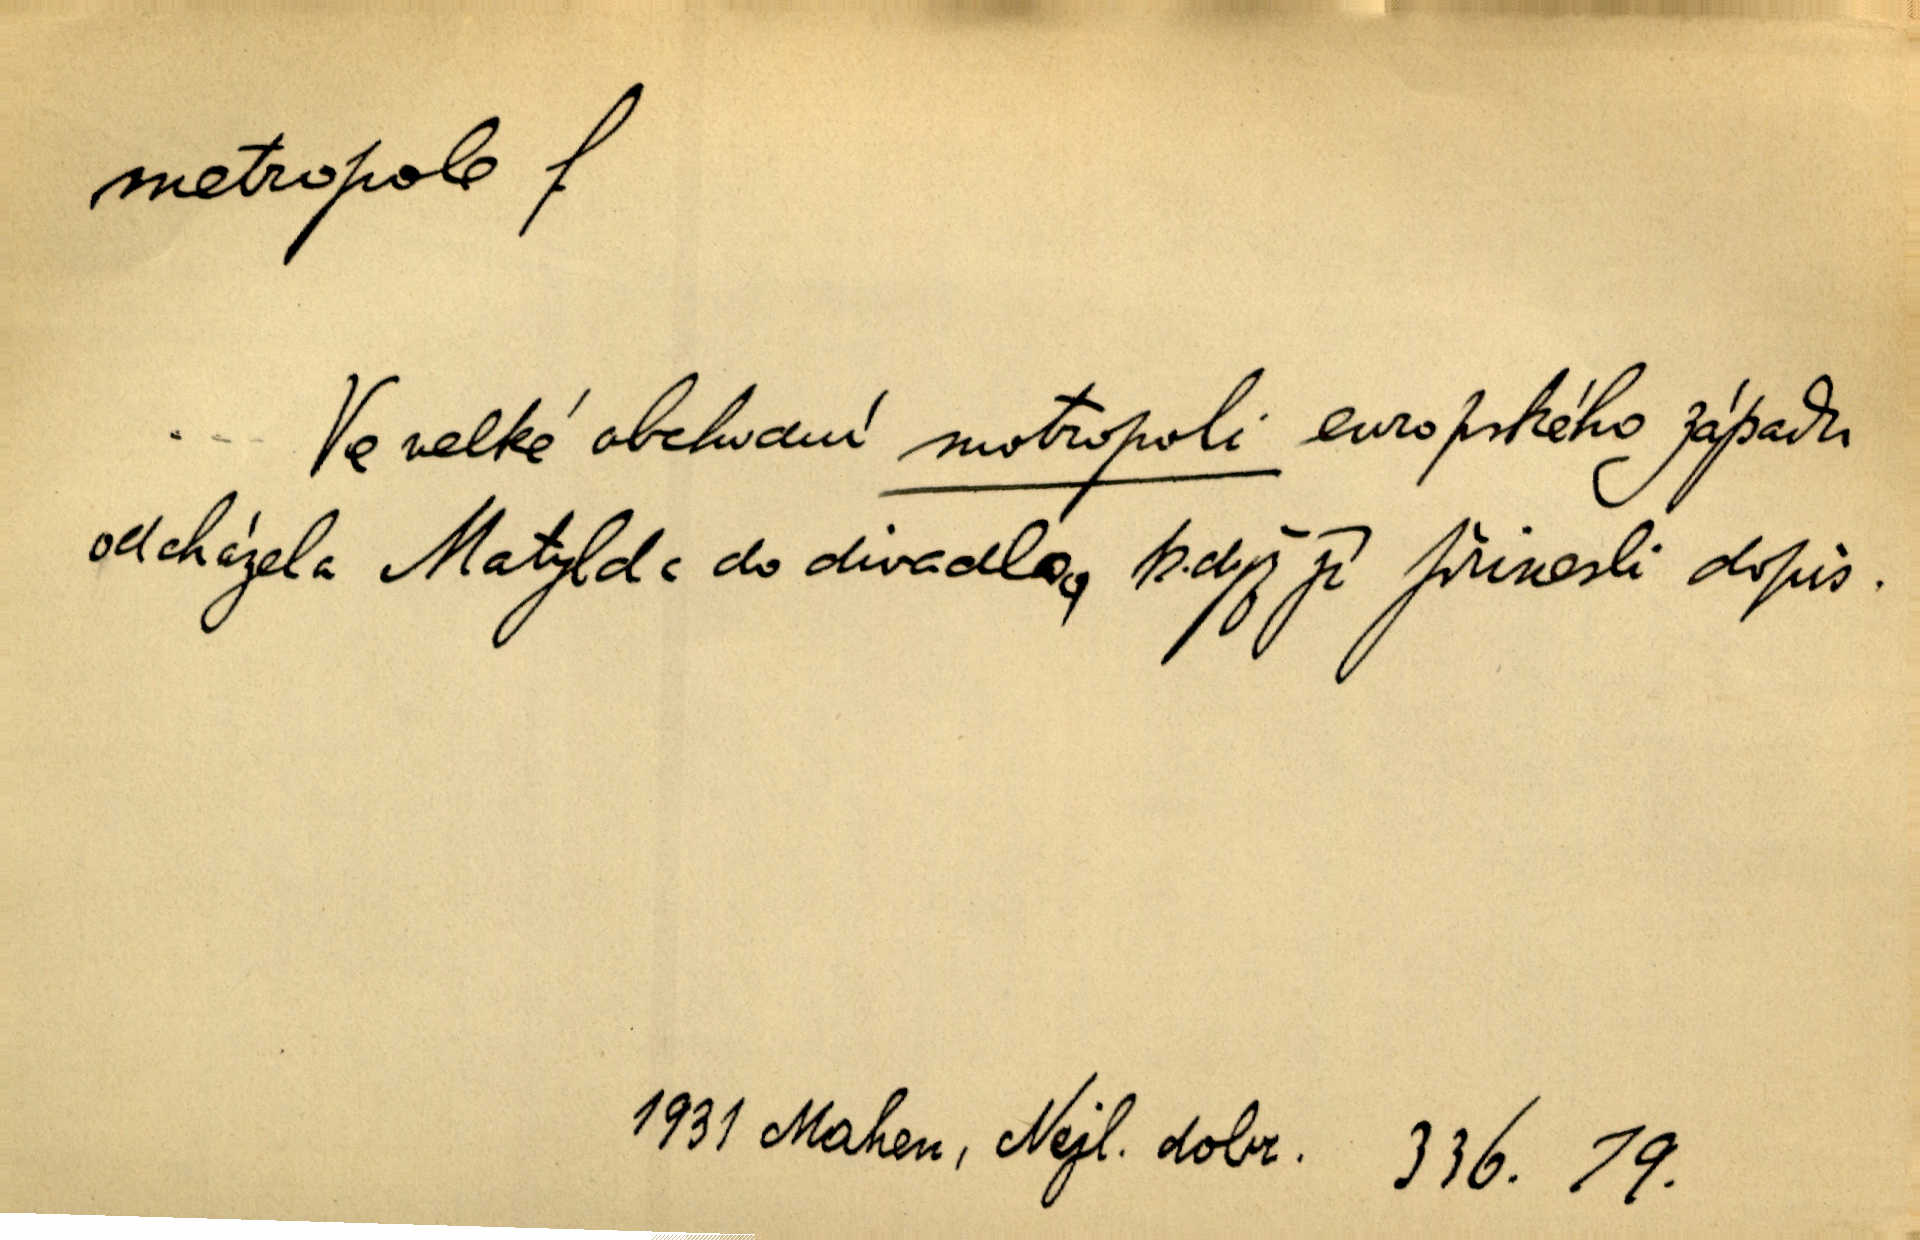 metropole f
Ve velké obchodní metropoli evropského západu
odcházela Matylda do divadla, když jí přinesli dopis.
1931 Mahen, Nejl. dobr. 336. 19.